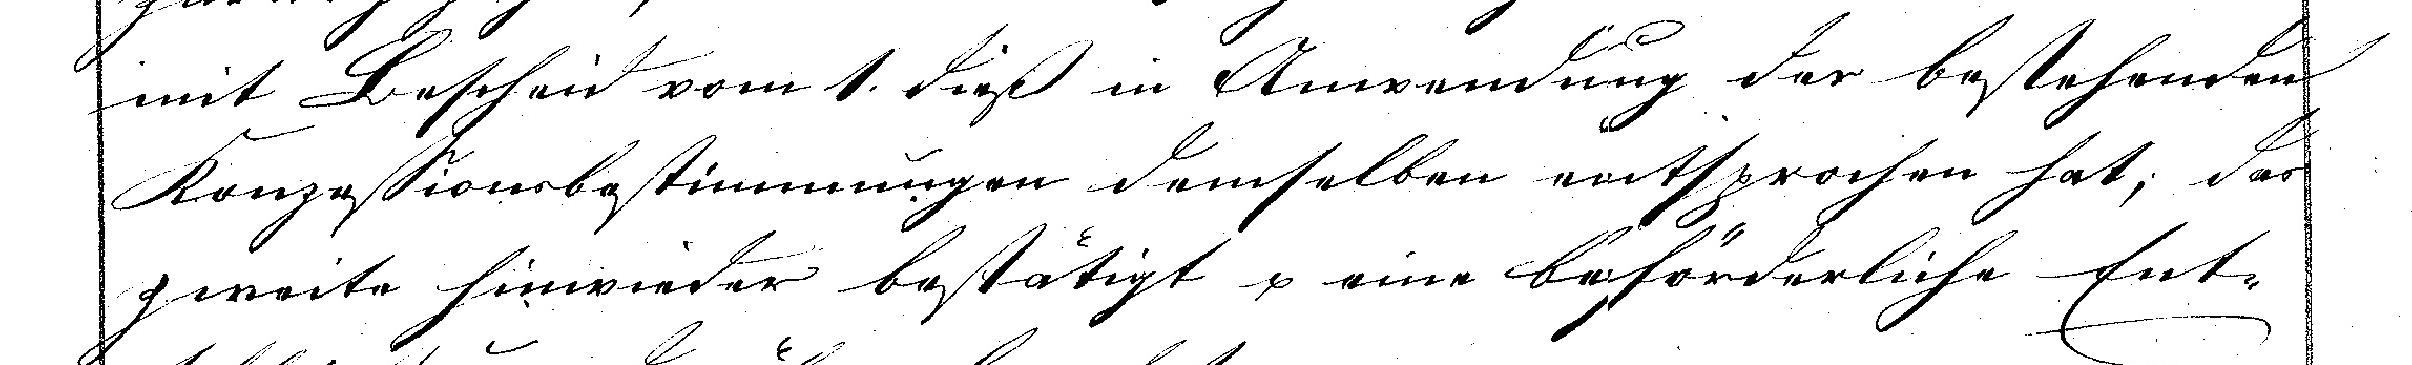 mit Bescheid vom 1. dieß in Anwendung der bestehenden
Konzessionsbestimmungen demselben entsprochen hat, das
zweite hinwieder bestätigt & eine beförderliche Ent-